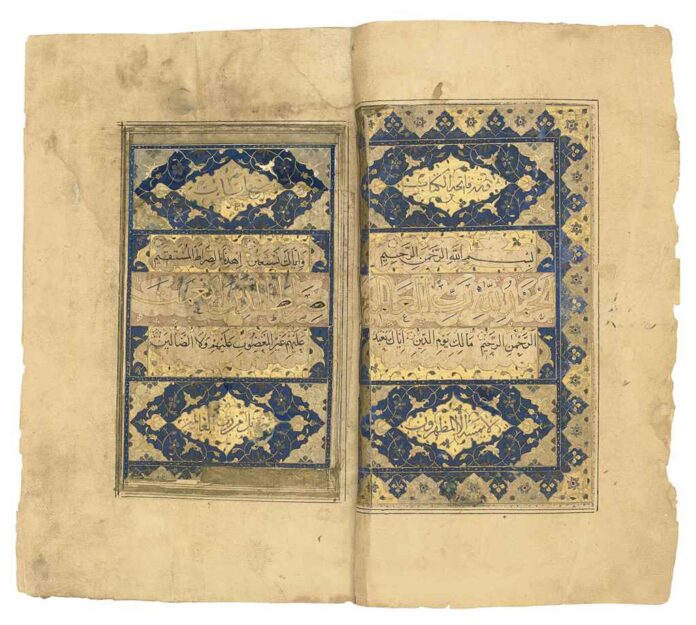 فاتحة الكتاب
بسم الله الرحمن الرحيم
الحمد لله رب العالمين
الرحمن الرحيم مالك يوم الدين اياك نعبد
لا يمسه الا المطهرون
واياك نستعين اهدنا الصراط المستقيم
صراط الذين انعمت
عليهم غير المغضوب عليهم ولا الضالين
تنزيل من رب العالمين